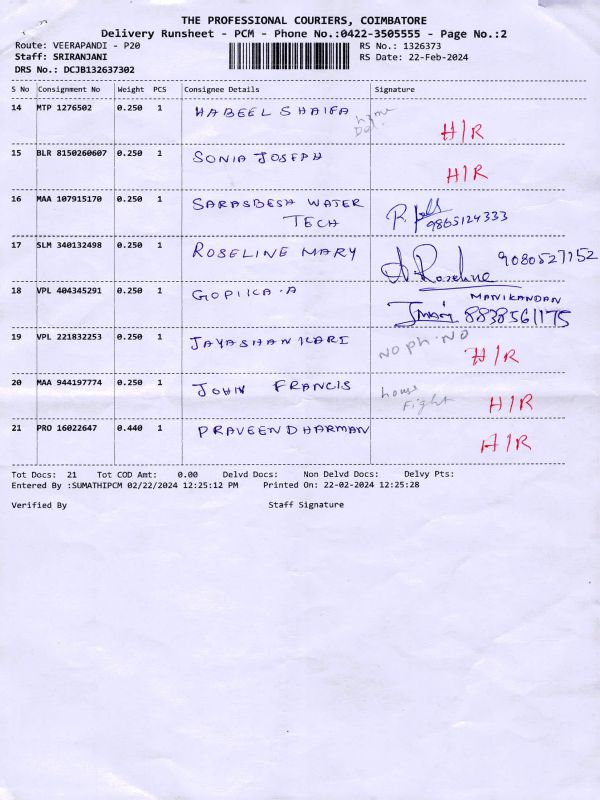 THE PROFESSIONAL COURIERS, COIMBATORE
Delivery Runsheet - PCM - Phone No.:0422-3505555 - Page No.:2
Route: VEERAPANDI - P20 RS No.: 1326373
Staff: SRIRANJANI RS Date: 22-Feb-2024
DRS No.: DCJB132637302
S No Consignment No Weight PCS Consignee Details Signature
14 MTP 1276502 0.250 1 HABEEL SHAIFA
H/R
15 BLR 8150260607 0.250 1 SONIA JOSEPH
H/R
16 MAA 107915170 0.250 1 SARASBESH WATER
TECH 9865124333
17 SLM 340132498 0.250 1 ROSELINE MARY 9080527152
A. Roseline
18 VPL 404345291 0.250 1 GOPIKA.A MANIKANDAN
8838561175
19 VPL 221832253 0.250 1 JAYASHANKARI NO Ph.NO
H/R
20 MAA 944197774 0.250 1 JOHN FRANCIS house
H/R
21 PRO 16022647 0.440 1 PRAVEEN DHARMAN
H/R
Tot Docs: 21 Tot COD Amt: 0.00 Delvd Docs: Non Delvd Docs: Delvy Pts:
Entered By :SUMATHIPCM 02/22/2024 12:25:12 PM Printed On: 22-02-2024 12:25:28
Verified By Staff Signature